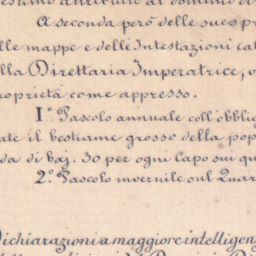 A seconda però delle sue
lle mappe e delli Intestazioni
lla Direttaria Imperatrice,
roprietà come appresso.
1.º Pascolo annuale coll'obbli
ate il bestiame grosso della pop
da di baj. 30 per ogni Capo sui
2.º Pascolo invernile sul Quar
Dichiarazioni a maggiore intelligen